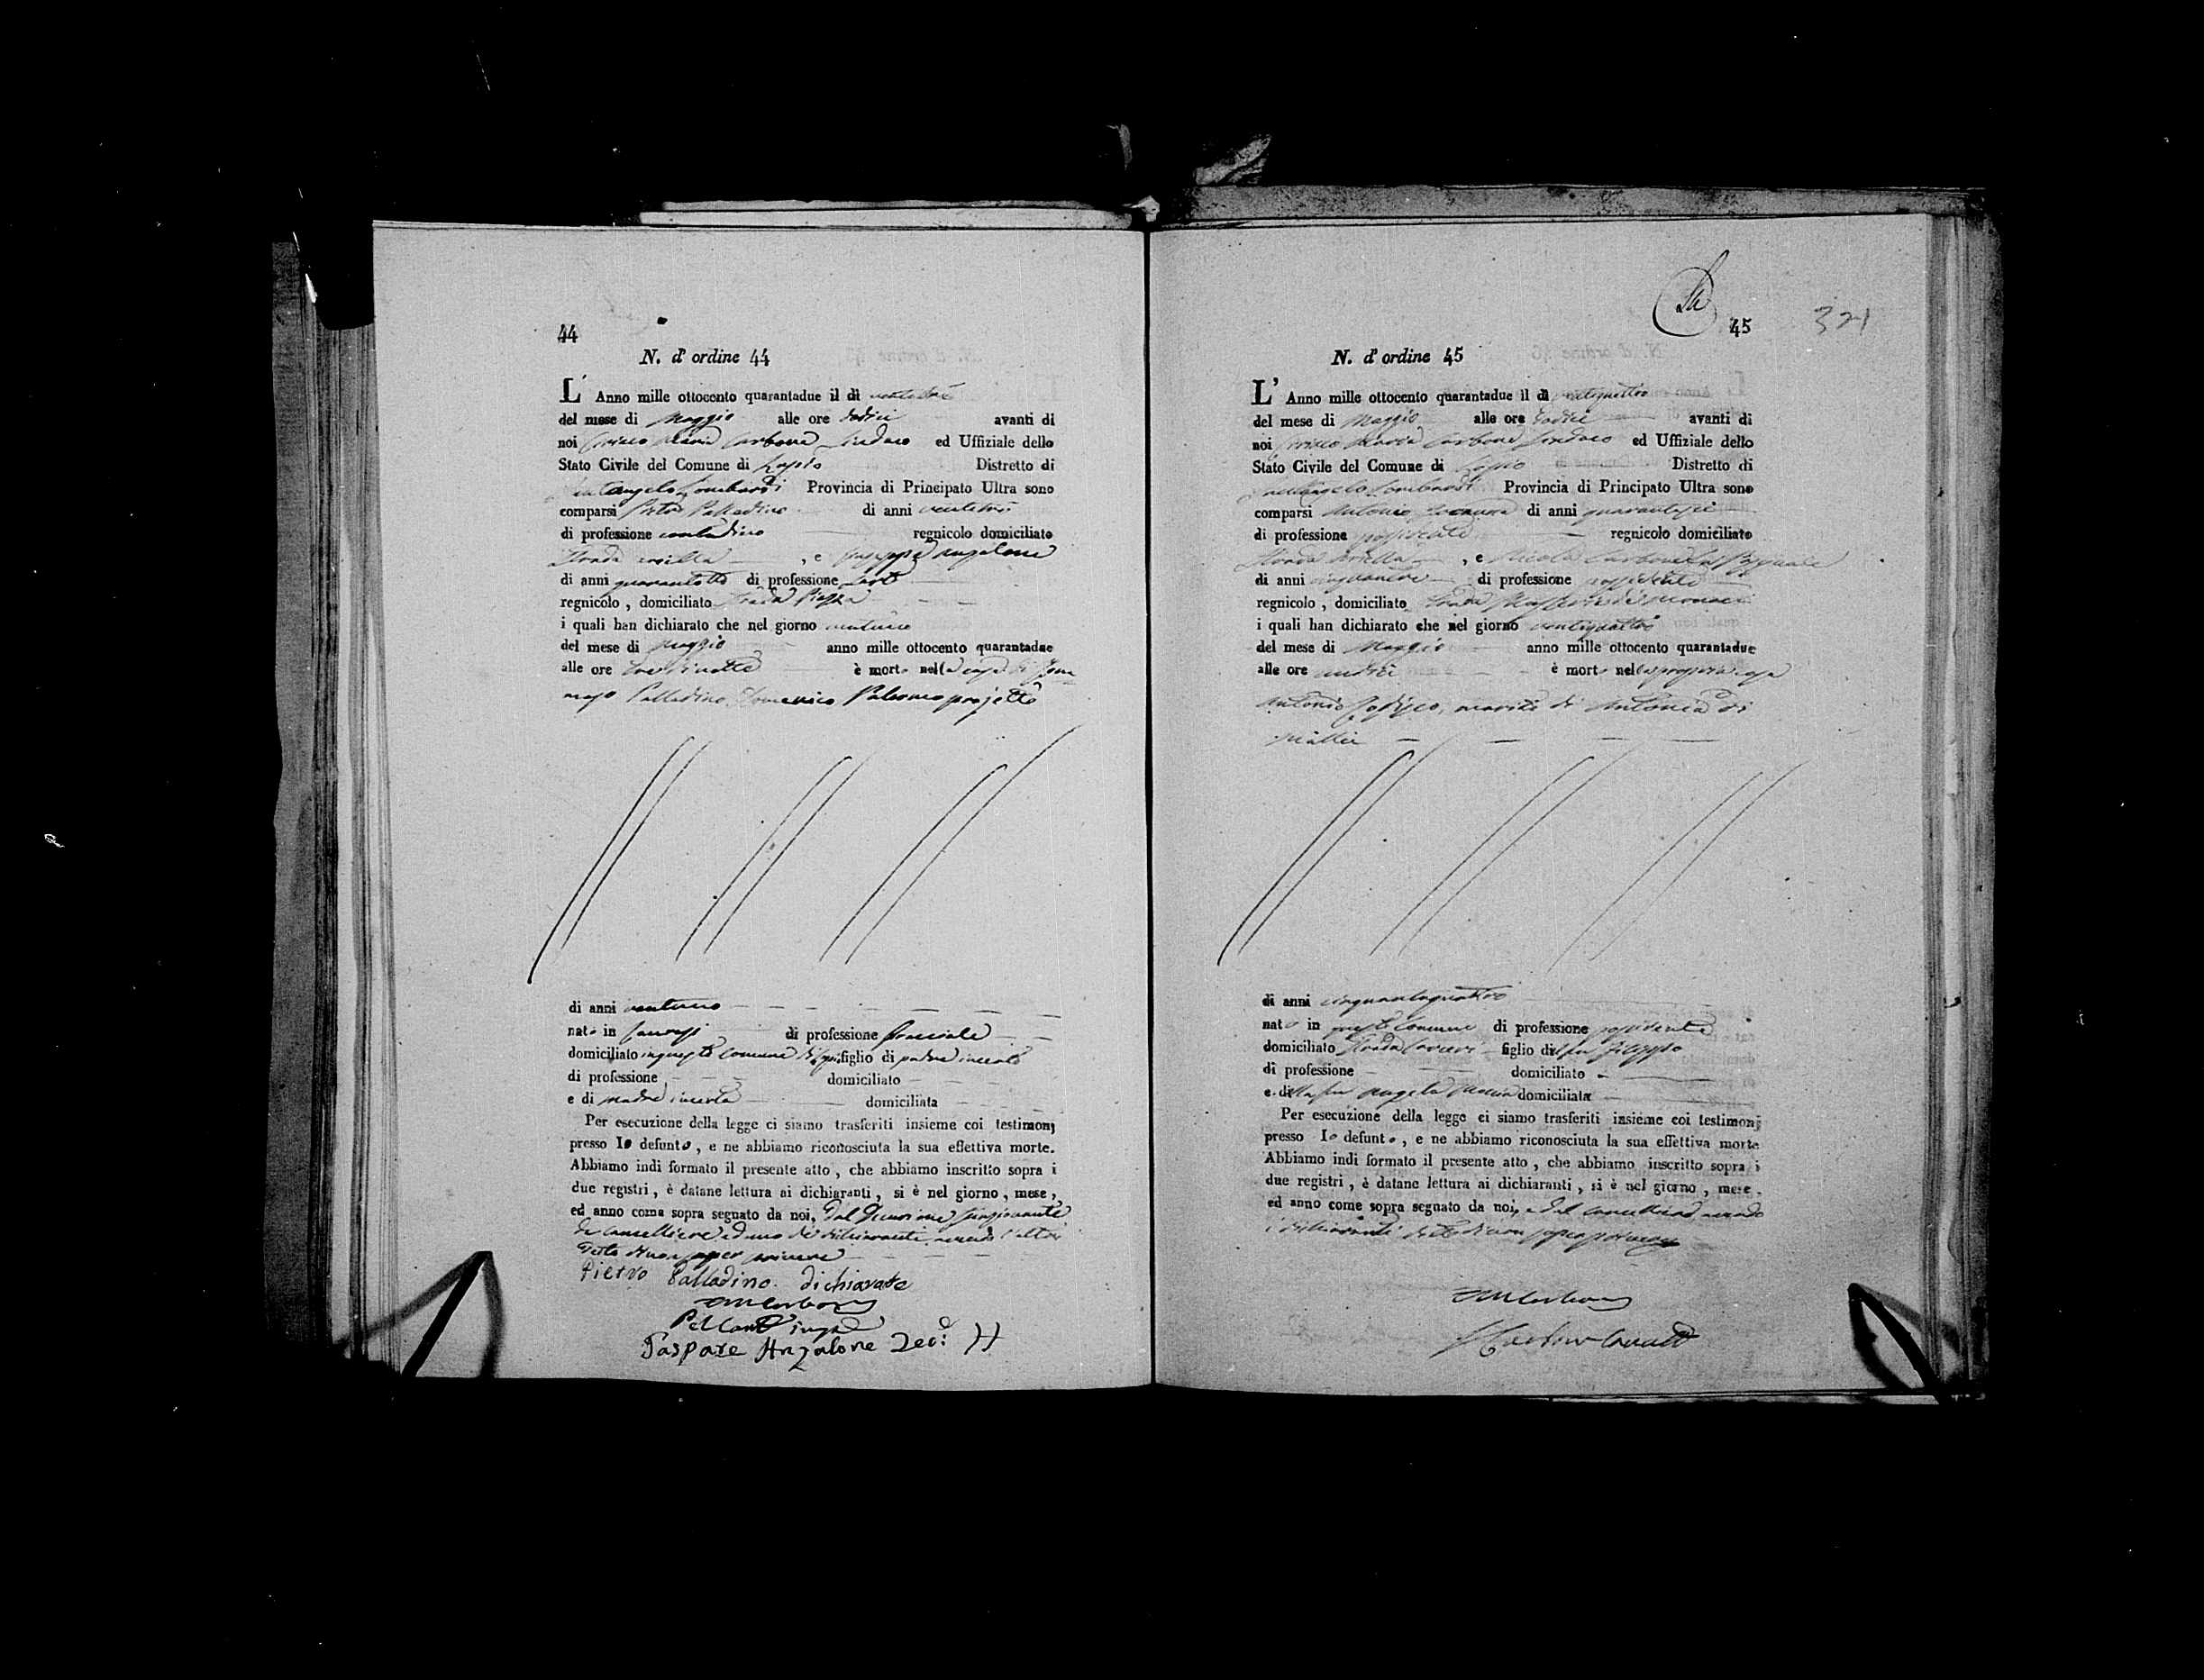 44
N. d' ordine 44
L' Anno mille ottocento quarantadue il dì ventitre
del mese di Maggio alle ore dodici avanti di
noi Maria Carbone Sindaco ed Uffiziale dello
Stato Civile del Comune di Lapio Distretto di
Santangelo Lombardi Provincia di Principato Ultra sono
comparsi Pietro Palladino di anni ventitre
di professione contadino regnicolo domiciliato
Strada , e Giuseppe Anzalone
di anni quarantotto di professione sarto
regnicolo , domiciliato Strada Piazza
i quali han dichiarato che nel giorno ventuno
del mese di Maggio anno mille ottocento quarantadue
alle ore tre di notte è morto nella casa di Tom
maso Palladino Domenico Palermo projetto
di anni ventuno
nato in di professione bracciale
domiciliato in questo comune figlio di padre incerto
di professione domiciliato
e di madre incerta domiciliata
Per esecuzione della legge ci siamo trasferiti insieme coi testimonj
presso lo defunto , e ne abbiamo riconosciuta la sua effettiva morte.
Abbiamo indi formato il presente atto , che abbiamo inscritto sopra i
due registri , è datane lettura ai dichiaranti , si è nel giorno , mese ,
ed anno come sopra segnato da noi, dal Decurione funzionante
da Cancelliere, ed uno de' dichiaranti avendo l'altro
detto di non saper scrivere
Pietro Palladino dichiarate
Gaspare Anzalone Dec:
45
321
N. d' ordine 45
L' Anno mille ottocento quarantadue il dì ventiquattro
del mese di Maggio alle ore dodici avanti di
noi Maria Carbone Sindaco ed Uffiziale dello
Stato Civile del Comune di Lapio Distretto di
Santangelo Lombardi Provincia di Principato Ultra sono
comparsi Antonio di anni quarantasei
di professione possidente regnicolo domiciliato
Strada , e Nicola Carbone Pasquale
di anni di professione possidente
regnicolo , domiciliato Strada
i quali han dichiarato che nel giorno ventiquattro
del mese di Maggio anno mille ottocento quarantadue
alle ore undici è morto nella propria casa
Antonio marito di Antonia di
di anni cinquantaquattro
nato in questo Comune di professione possidente
domiciliato Strada figlio del fu Filippo
di professione domiciliato
e della fu Angela domiciliata
Per esecuzione della legge ci siamo trasferiti insieme coi testimonj
presso lo defunto , e ne abbiamo riconosciuta la sua effettiva morte
Abbiamo indi formato il presente atto , che abbiamo inscritto sopra i
due registri , è datane lettura ai dichiaranti , si è nel giorno , mese ,
ed anno come sopra segnato da noi, e dal Cancelliere avendo
i dichiaranti detto di non saper scrivere